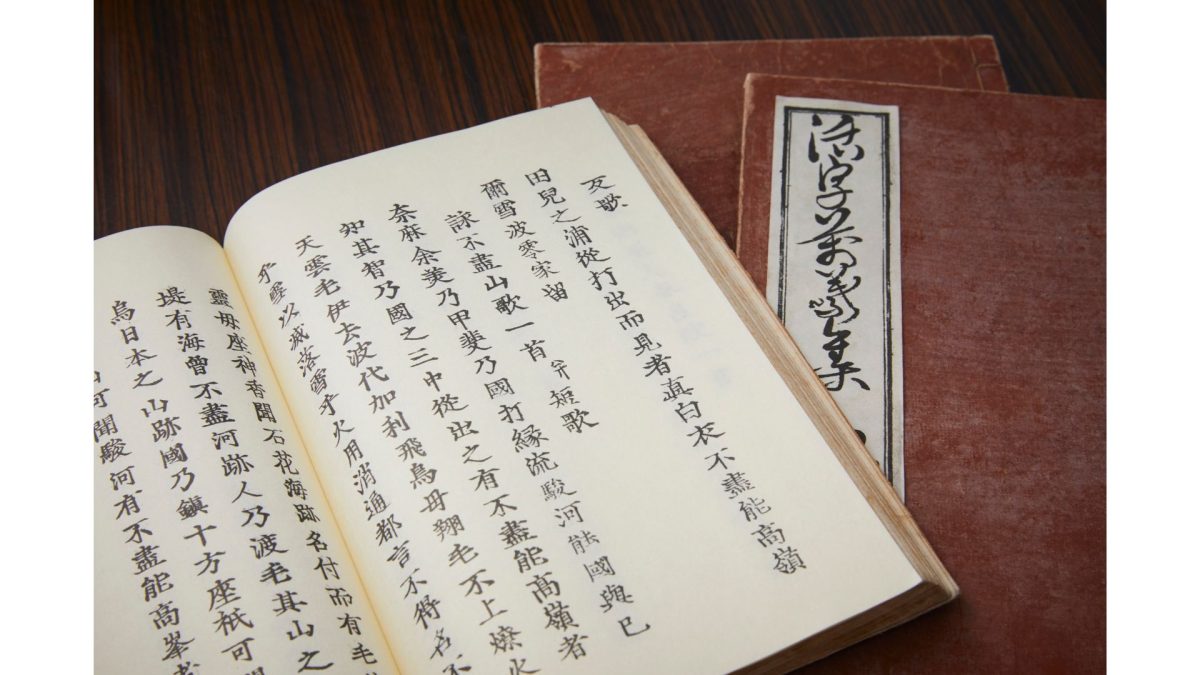 反歌
田兒之浦從打出而見者真白衣不盡能高嶺
爾雪波零家留
詠不盡山歌一首并短歌
奈麻余美乃甲斐乃國打縁流駿河能國與己
知其智乃國之三中從出之有不盡能高嶺者
天雲毛伊去波代加利飛鳥毋翔毛不上燎火
乎雪以滅落雪乎火用消通都言不得名不
靈毋座神香聞石花海跡名付而有毛
堤有海曾不盡河跡人乃渡毛其山之
烏日本之山跡國乃鎭十方座祇可
可聞駿河有不盡能高峯者
活字
萬葉集